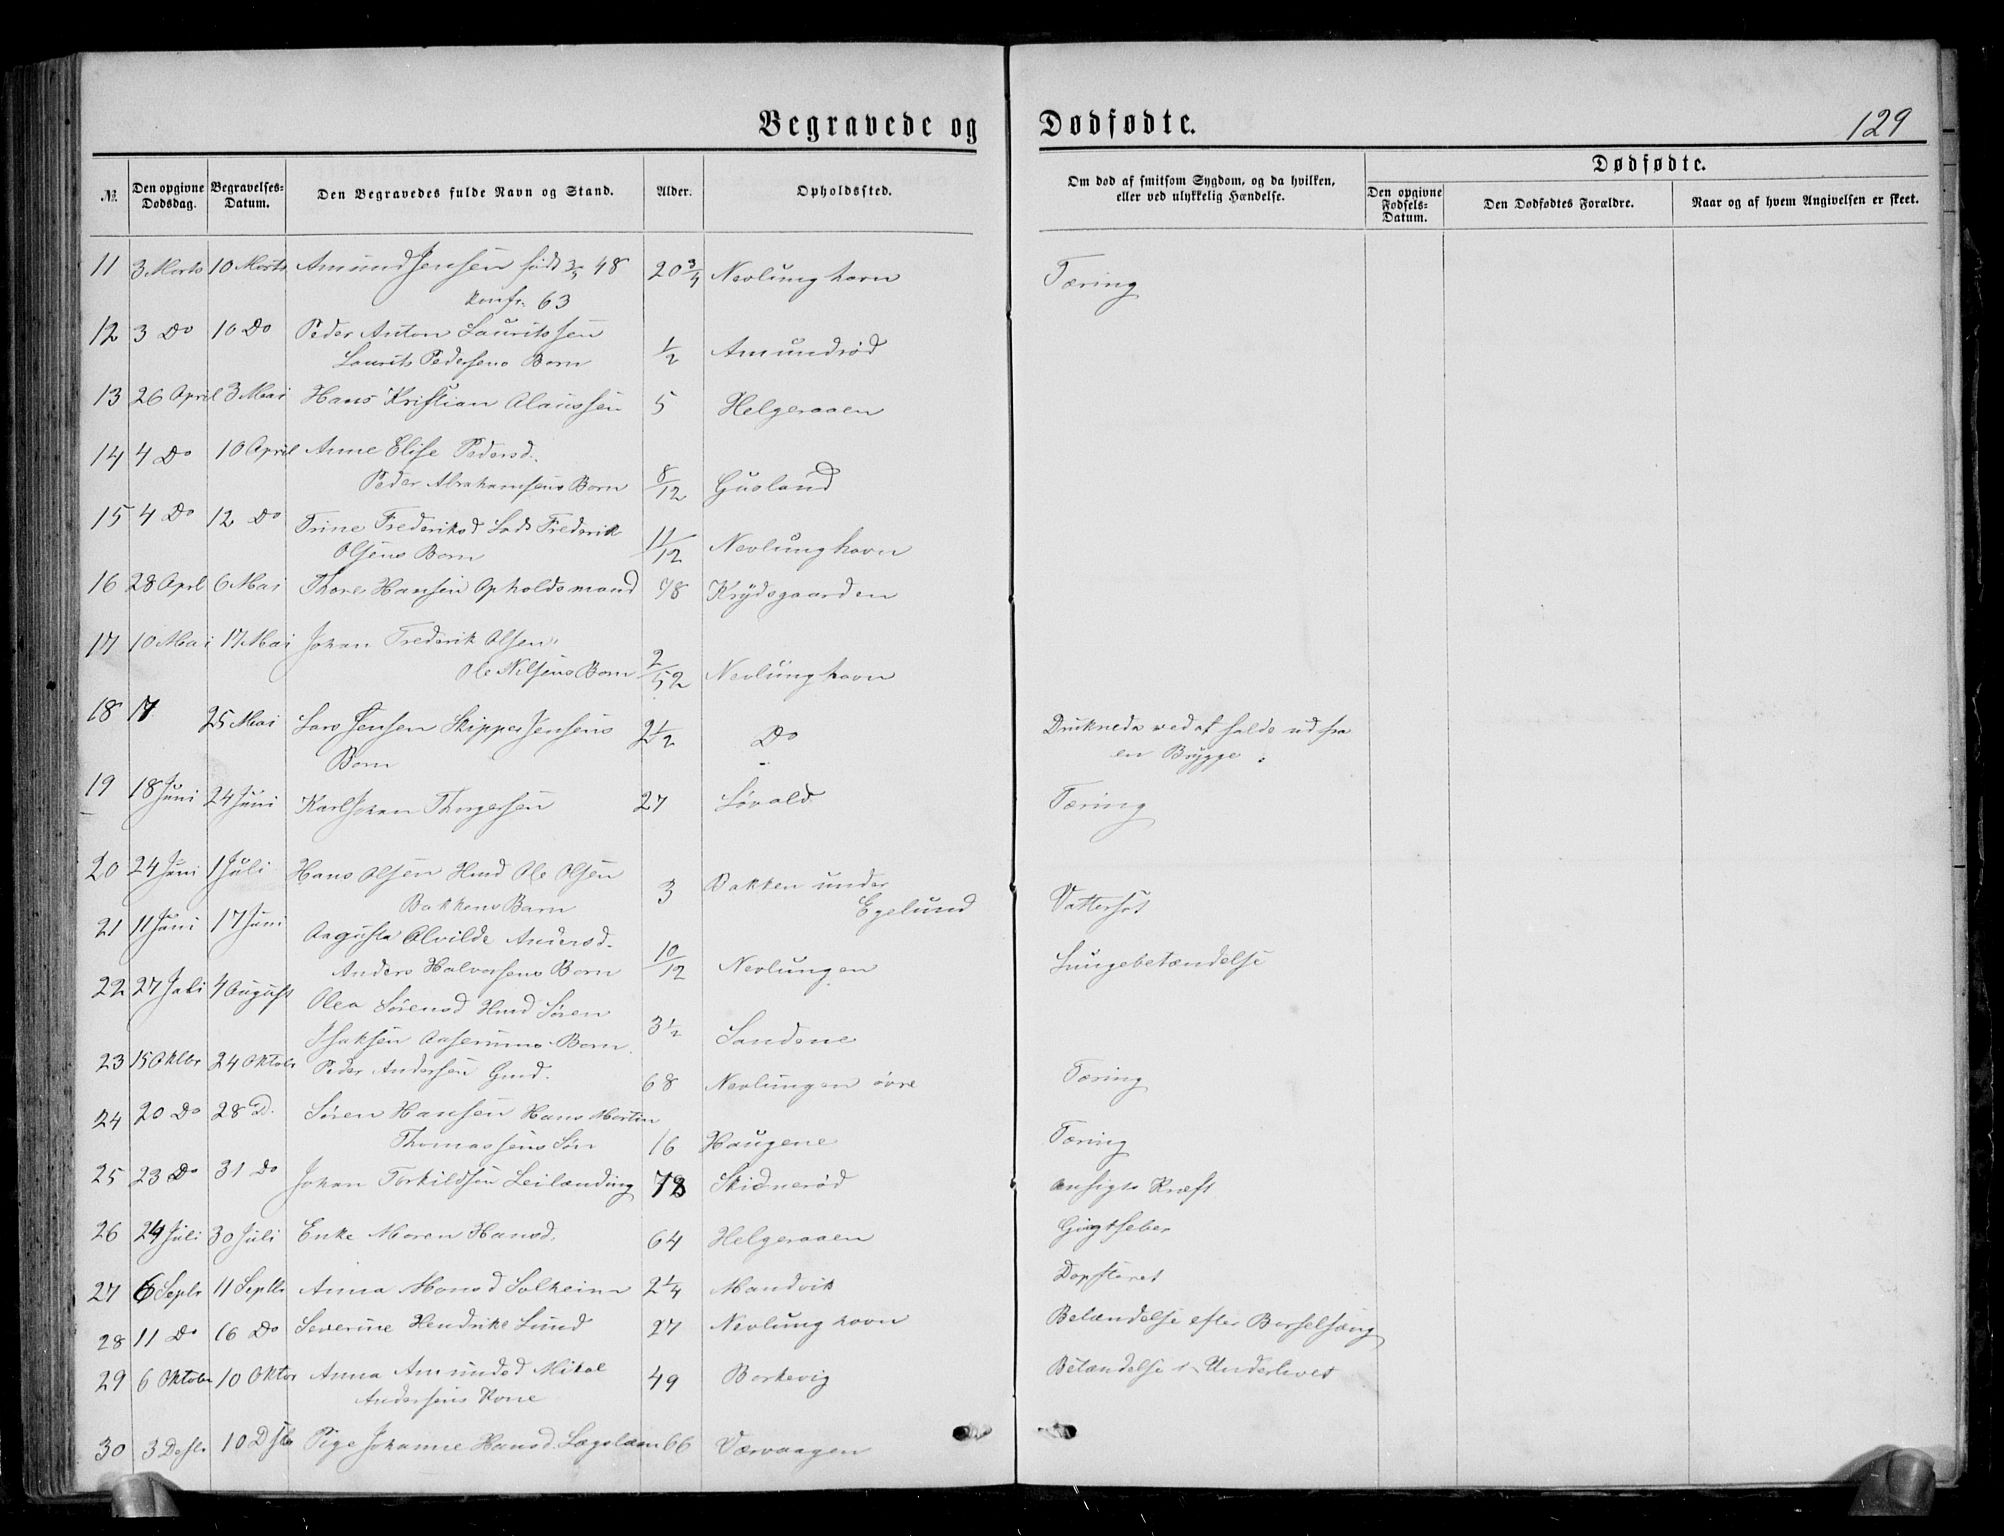 Begravede og Dødfødte.
129
№ Den opgivne Dødsdag. Begravelses-Datum. Den Begravedes fulde Navn og Stand. Alder. Opholdssted. Om død af smitsom Sygdom, og da hvilken, eller ved ulykkelig Hændelse. Dødfødte.
Den opgivne Fødsels-Datum. Den Dødfødtes Forældre. Naar og af hvem Angivelsen er skeet.
11 3 Marts 10 Marts Amund Jensen født 48 20 3/4 Nevlunghavn Tæring
konfr. 63
12 3 Do 10 Do Peder Anton Lauritssen
Laurits Pedersens Barn 1/2 Amundrød
13 26 April 3 Mai Hans Kristian Claussen 5 Helgeraaen
14 4 Do 10 April Anne Elise Pedersd.
Peder Abrahamsens Barn 8/12 Gusland
15 4 Do 12 Do Trine Frederiksd Lods Frederik
Olsens Barn 11/12 Nevlunghavn
16 28 Aprl 6 Mai Thore Hansen Opholdsmand 78 Krydsgaarden
17 10 Mai 17 Mai Johan Frederik Olsen
Ole Nilsens Barn 2/52 Nevlunghavn
18 17 25 Mai Lars Jensen Skipper Jensens 2 1/2 Do Druknede ved at falde ud fra
Barn en Brygge.
19 18 Juni 24 Juni Karl Johan Thorgersen 27 Løvald Tæring
20 24 Juni 1 Juli Hans Olsen Hmd Ole Olsen
Bakkens Barn 3 Bakken under
Egelund Vattersot
21 11 Juni 17 Juni Augusta Alvilde Andersd.
Anders Halvorsens Barn 10/12 Nevlungen Lungebetændelse
22 27 Juli 4 August Olea Sørensd Hmd Søren
Isaksen Aaserums Barn 3 1/2 Sandene
23 15 Oktbr 24 Oktobr Peder Andersen Gmd. 68 Nevlungen øvre Tæring
24 20 Do 28 D. Søren Hansen Hans Martin
Thomassens Søn 16 Haugene Tæring
25 23 Do 31 Do Johan Torkildsen Leilænding 78 Skidnerød Ansigts Kræft
26 24 Juli 30 Juli Enke Maren Hansd. 64 Helgeraaen Gigtfeber
27 6 Septr 11 Septbr Anna Monsd Solheim 2 1/4 Mandvik
28 11 Do 16 Do Severine Hendrike Lund 27 Nevlunghavn Betændelse efter Barselsæng
29 6 Oktober 10 Oktor Anna Amundsd Mikal
Andersens Kone 49 Barkevig Betændelse i Underlivet
30 10 Pige Johanne Hansd. 66 Værvaagen